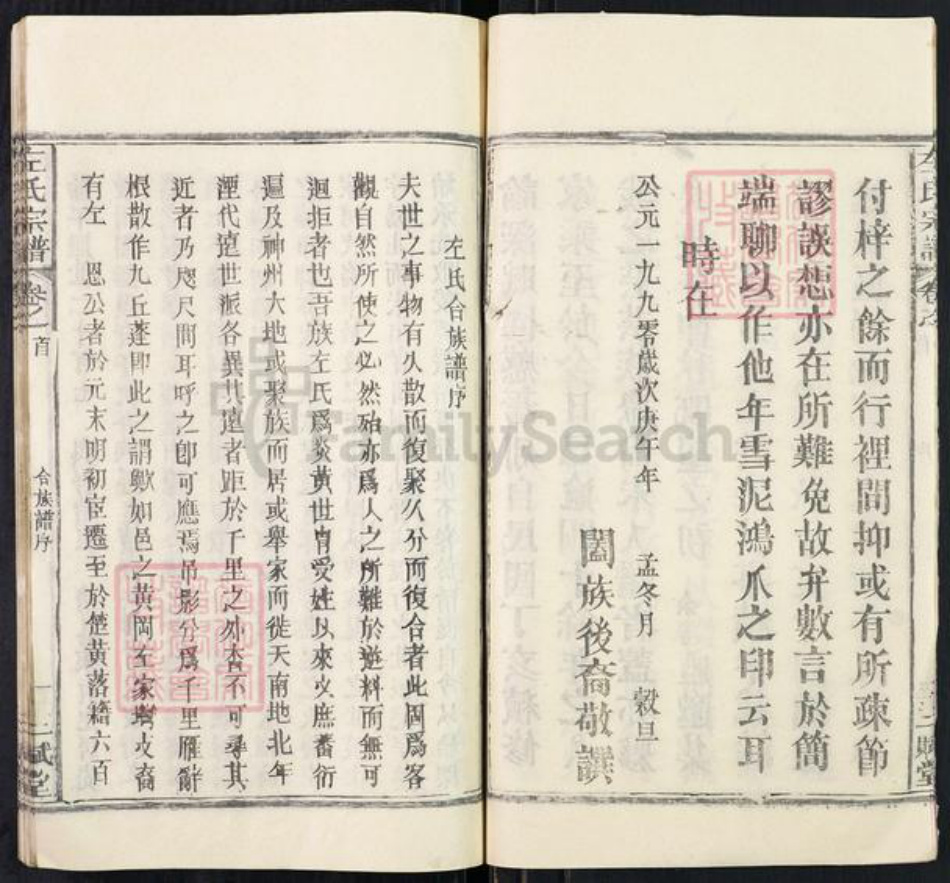 付梓之餘而行裡間抑或有所疎節
謬誤想亦在所難免故弁數言於簡
端聊以作他年雪泥鴻爪之印云耳
時在
公元一九九零歲次庚午年 孟冬月 穀旦
闔族後裔敬譔
左氏合族譜序
夫世之事物有久散而復聚久分而復合者此固爲客
觀自然所使之必然殆亦爲人之所難於逆料而無可
迴拒者也吾族左氏爲炎黃世胄受姓以來支庶蕃衍
遍及神州大地或聚族而居或舉家而徙天南地北年
湮代遠世派各異其遠者距於千里之外杳不可尋其
近者乃咫尺間耳呼之卽可應焉吊影分爲千里雁辭
根散作九丘蓬即此之謂歟如邑之黃岡左家塆支裔
有左 恩公者於元末明初宦遷至於楚黃落籍六百
左氏宗譜 卷之首
合族譜序
三賦堂
FamilySearch